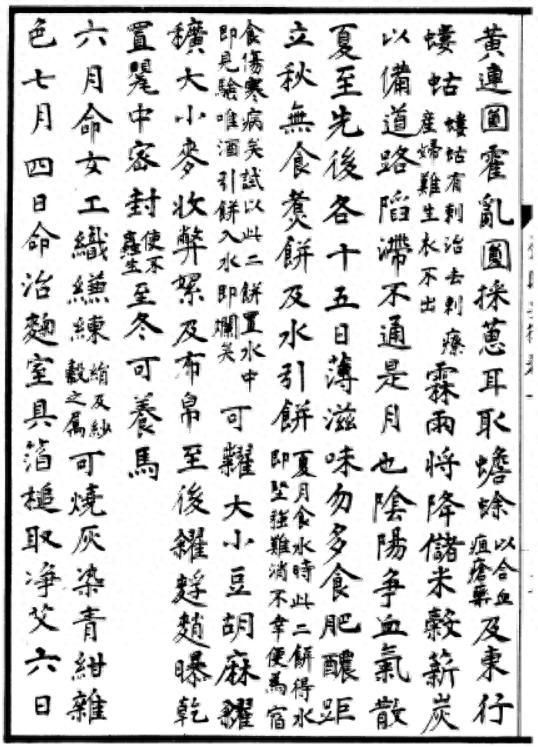 黃連圓霍亂圓採蔥耳取蟾蜍以合血疽瘡藥及東行
螻蛄螻蛄有刺治去刺療產婦難生衣不出霖雨將降儲米穀薪炭
以備道路陷滯不通是月也陰陽爭血氣散
夏至先後各十五日薄滋味勿多食肥醲距
立秋無食煑餅及水引餅夏月食水時此二餅得水即堅強難消不幸便為宿
食傷寒病矣試以此二餅置水中即見驗唯酒引餅入水即爛矣可糶大小豆胡麻糴
穬大小麥收弊絮及布帛至後糴麱䴬曝乾
置甖中密封使不蟲生至冬可養馬
六月命女工織縑練絹及紗縠之屬可燒灰染青紺雜
色七月四日命治麴室具箔槌取淨艾六日